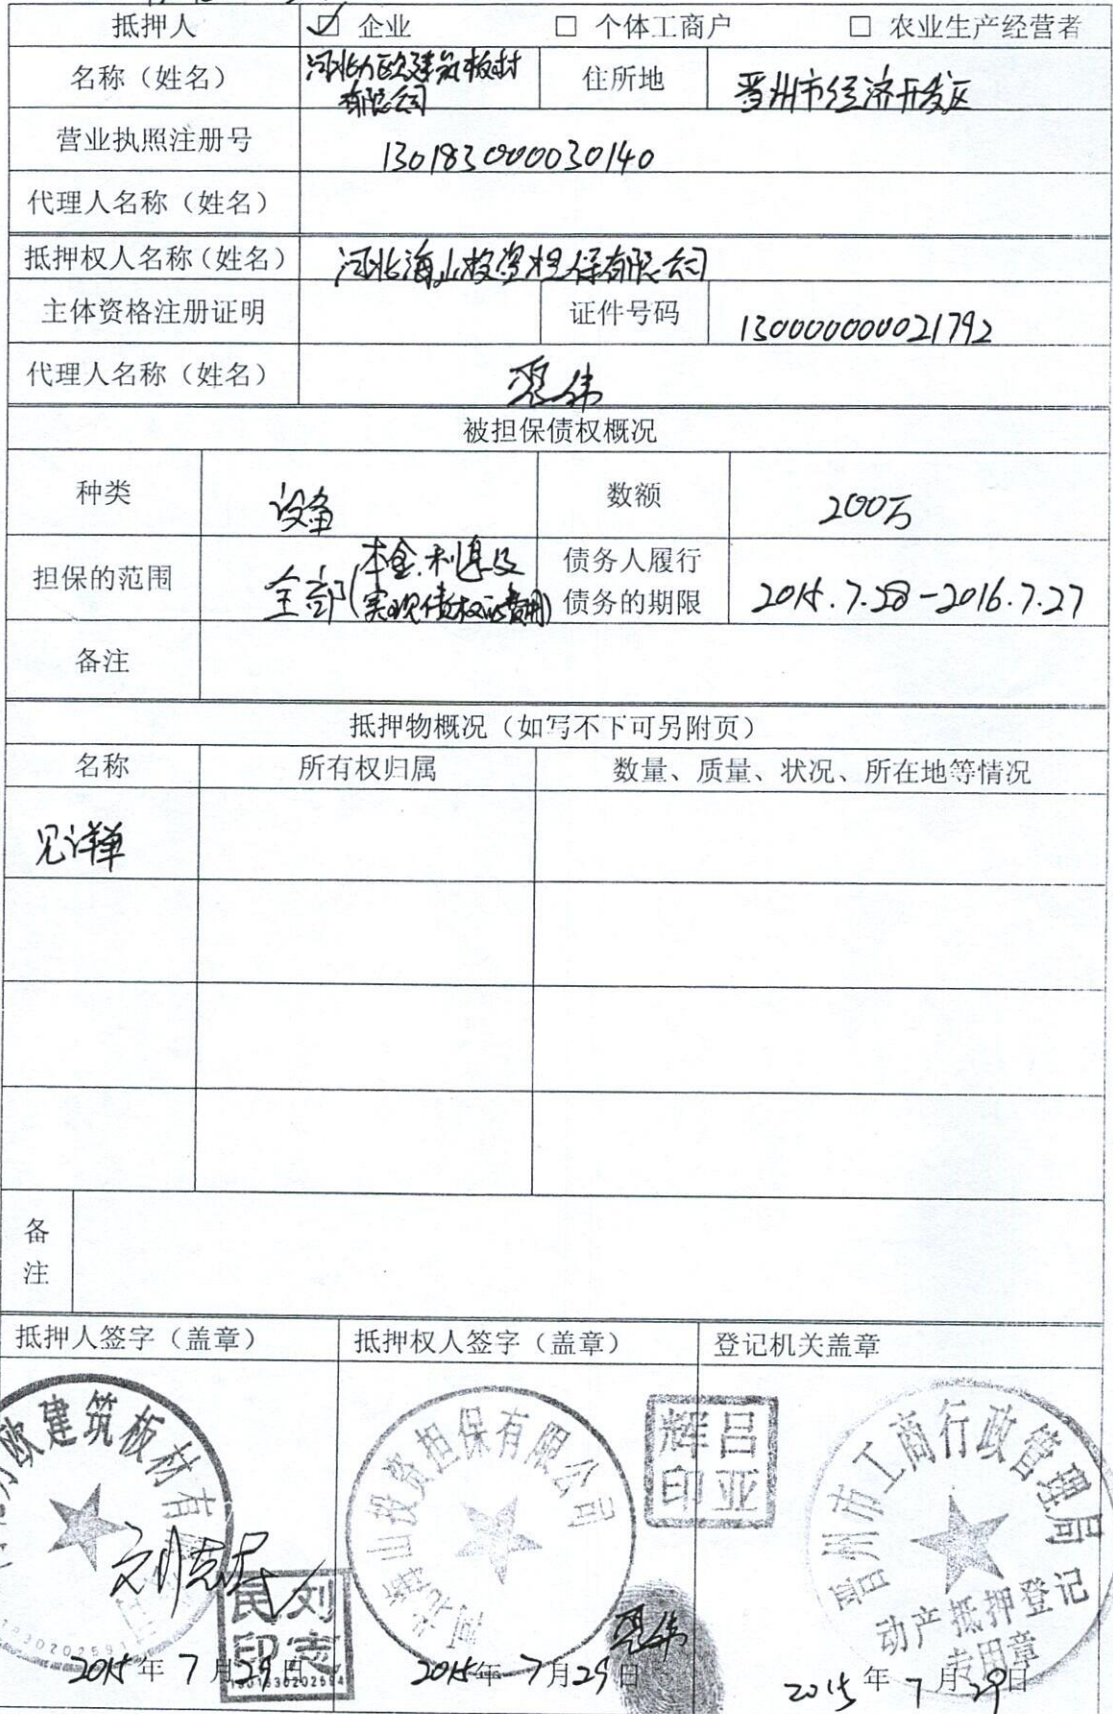 抵押人 ☑ 企业 □ 个体工商户 □ 农业生产经营者
名称（姓名） 河北力欧建筑板材 住所地 晋州市经济开发区
有限公司
营业执照注册号 130183000030140
代理人名称（姓名）
抵押权人名称（姓名） 河北海山投资担保有限公司
主体资格注册证明 证件号码 130000000021792
代理人名称（姓名）
被担保债权概况
种类 设备 数额 200万
担保的范围 全部(本金.利息及 债务人履行
实现债权的费用) 债务的期限 2015.7.28-2016.7.27
备注
抵押物概况（如写不下可另附页）
名称 所有权归属 数量、质量、状况、所在地等情况
见详单
备
注
抵押人签字（盖章） 抵押权人签字（盖章） 登记机关盖章
力欧建筑板材有
刘志民
刘志民印
1301830202594
河北海山投资担保有限公司
吕亚辉印
晋州市工商行政管理局
动产抵押登记
专用章
2015年7月29日 2015年7月29日 2015年7月29日